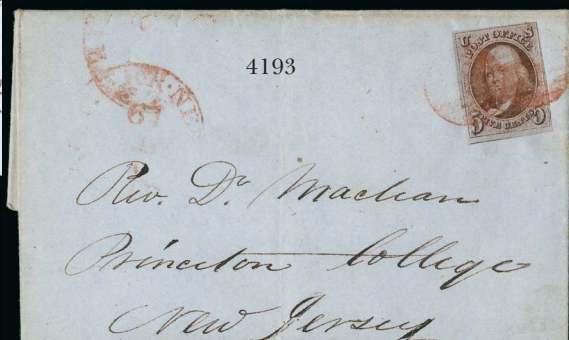 U S
POST OFFICE
4193
5 FIVE CENTS 5
Rev. Dr Maclean
Princeton College
New Jersey